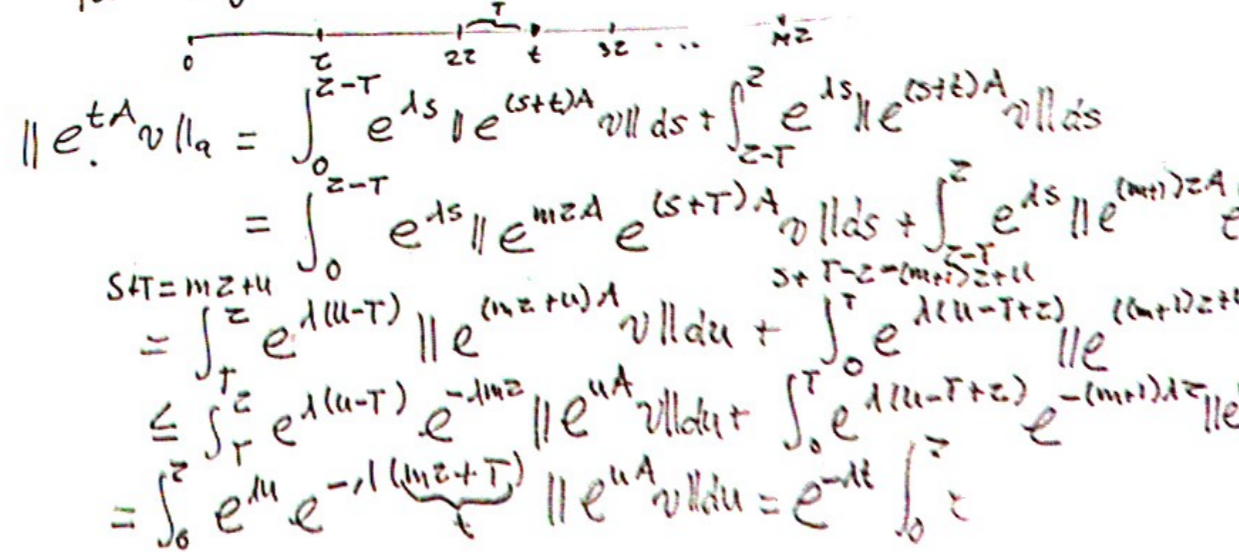 0 τ 2τ T t 3τ ... Mτ
||e^{tA}v||_a = ∫_0^{τ-T} e^{λs} ||e^{(s+t)A} v|| ds + ∫_{τ-T}^{τ} e^{λs} ||e^{(s+t)A} v|| ds
= ∫_0^{τ-T} e^{λs} ||e^{mτA} e^{(s+T)A} v|| ds + ∫_{τ-T}^{τ} e^{λs} ||e^{(m+1)τA} e
S+T = mτ+u s+T-τ-(m+1)τ+u
= ∫_T^τ e^{λ(u-T)} ||e^{(mτ+u)A} v|| du + ∫_0^T e^{λ(u-T+τ)} ||e^{((m+1)τ+
≤ ∫_T^τ e^{λ(u-T)} e^{-λmτ} ||e^{uA} v|| du + ∫_0^T e^{λ(u-T+τ)} e^{-(m+1)λτ} ||e
= ∫_0^τ e^{λu} e^{-λ(mτ+T)} ||e^{uA} v|| du = e^{-λt} ∫_0^τ
t